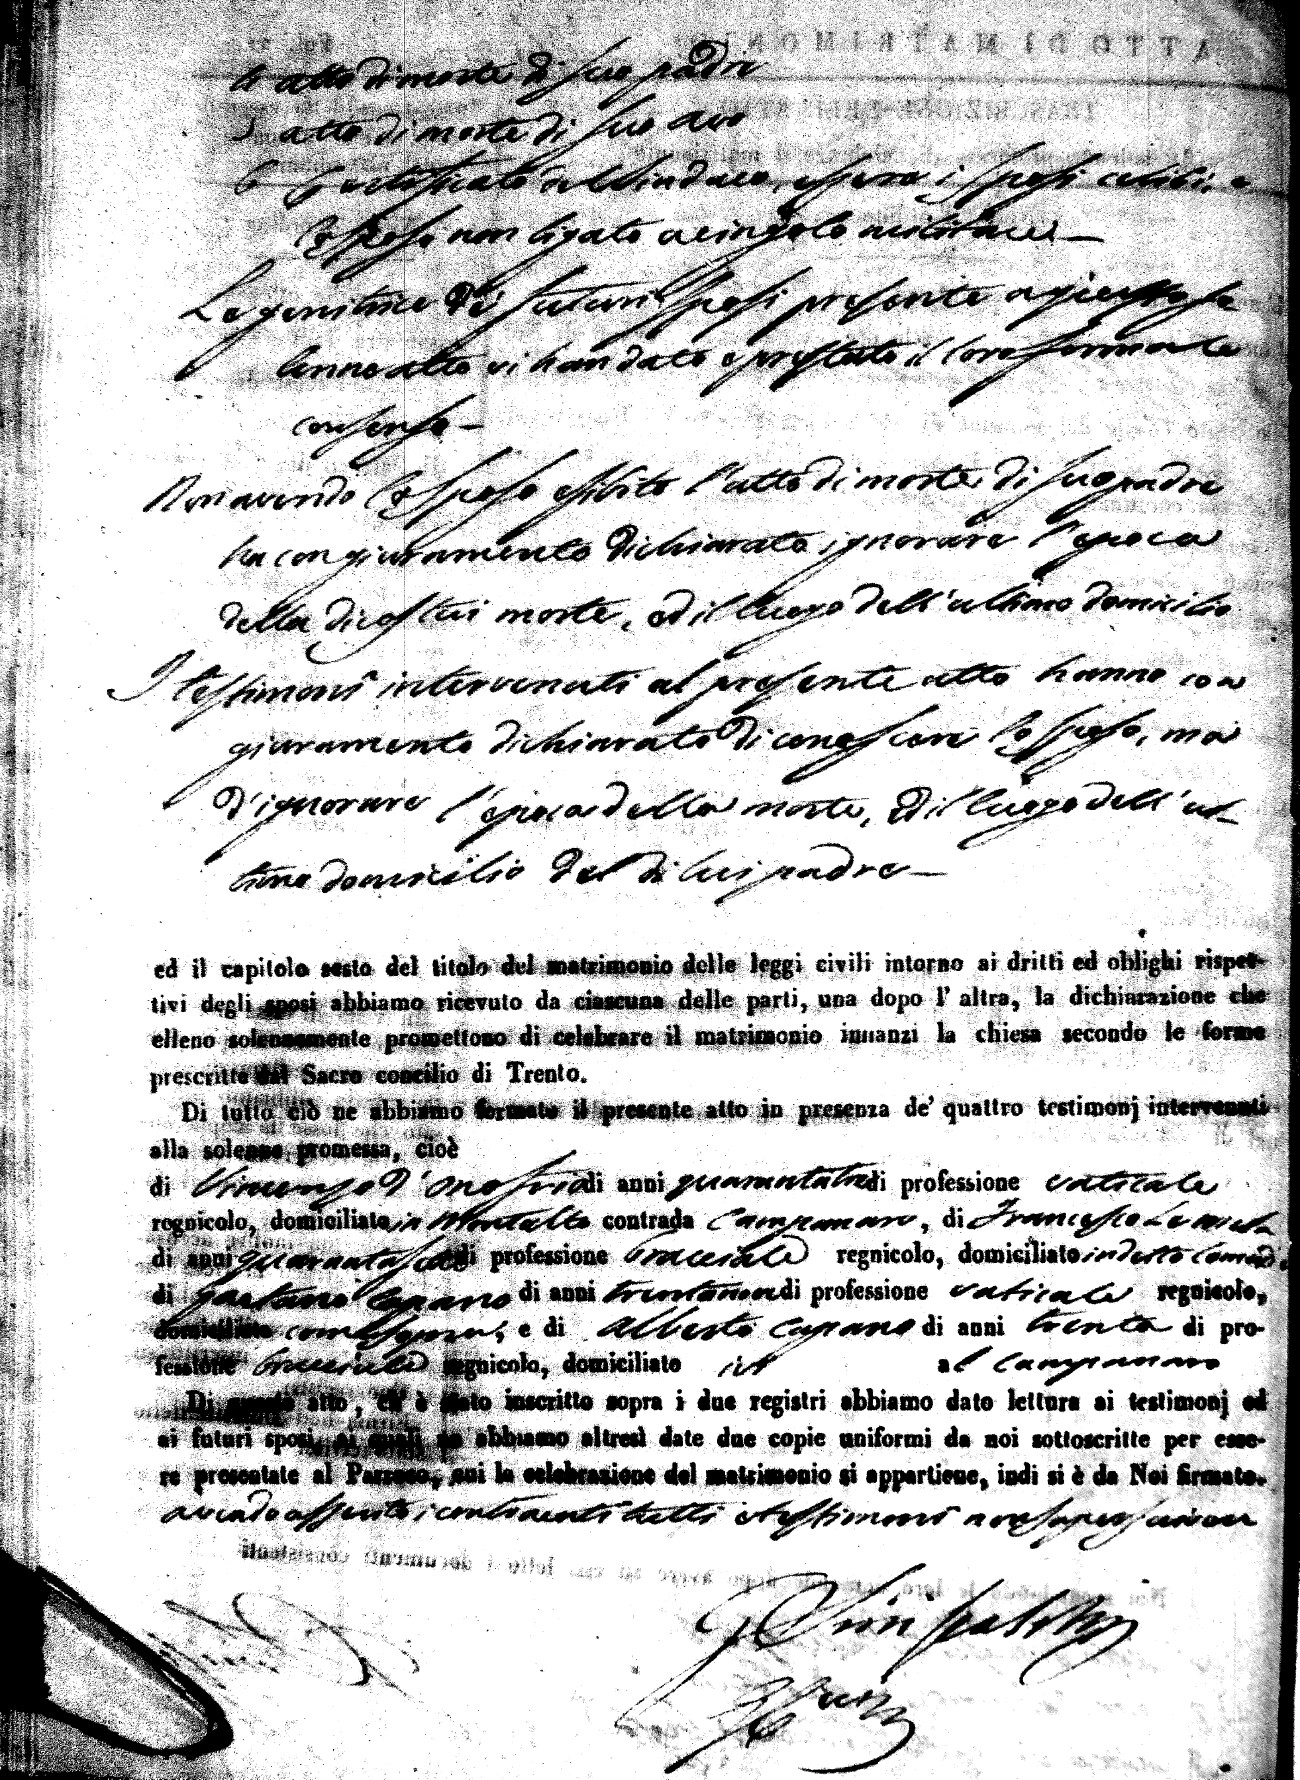 4 atto di morte di suo padre
5 atto di morte di suo avo
6 Certificato del Sindaco, essere i sposi celibi, e
lo sposo non ligato a cingolo militare —
Le genitrice de' futuri sposi presente a questo so
lenne atto vi han dato e prestato il loro formale
consenso —
Non avendo lo sposo esibito l'atto di morte di suo padre
ha con giuramento dichiarato ignorare l'epoca
della di costui morte, ed il luogo dell'ultimo domicilio
I testimoni intervenuti al presente atto hanno con
giuramento dichiarato di conoscere lo sposo, ma
d'ignorare l'epoca della morte, ed il luogo dell'ul-
timo domicilio del di lui padre —
ed il capitolo sesto del titolo del matrimonio delle leggi civili intorno ai dritti ed oblighi rispet-
tivi degli sposi abbiamo ricevuto da ciascuna delle parti, una dopo l' altra, la dichiarazione che
elleno solennemente promettono di celebrare il matrimonio innanzi la chiesa secondo le forme
prescritte dal Sacro concilio di Trento.
Di tutto ciò ne abbiamo formato il presente atto in presenza de' quattro testimonj intervenuti
alla solenne promessa, cioè
di Vincenzo d'Onofrio di anni quarantatre di professione vaticale
regnicolo, domiciliato in Montalto contrada Campanaro, di Francesco
di anni di professione bracciale regnicolo, domiciliato in detto Contrada
di Gaetano Capano di anni trentanove di professione vaticale regnicolo,
domiciliato come sopra, e di Alberto Capano di anni trenta di pro-
fessione bracciale regnicolo, domiciliato ivi al Campanaro
Di questo atto, ch' è stato inscritto sopra i due registri abbiamo dato lettura ai testimonj ed
ai futuri sposi, ai quali ne abbiamo altresì date due copie uniformi da noi sottoscritte per esse-
re presentate al Parroco, cui la celebrazione del matrimonio si appartiene, indi si è da Noi firmato.
avendo asserito i contraenti tutti e testimoni non saper scrivere